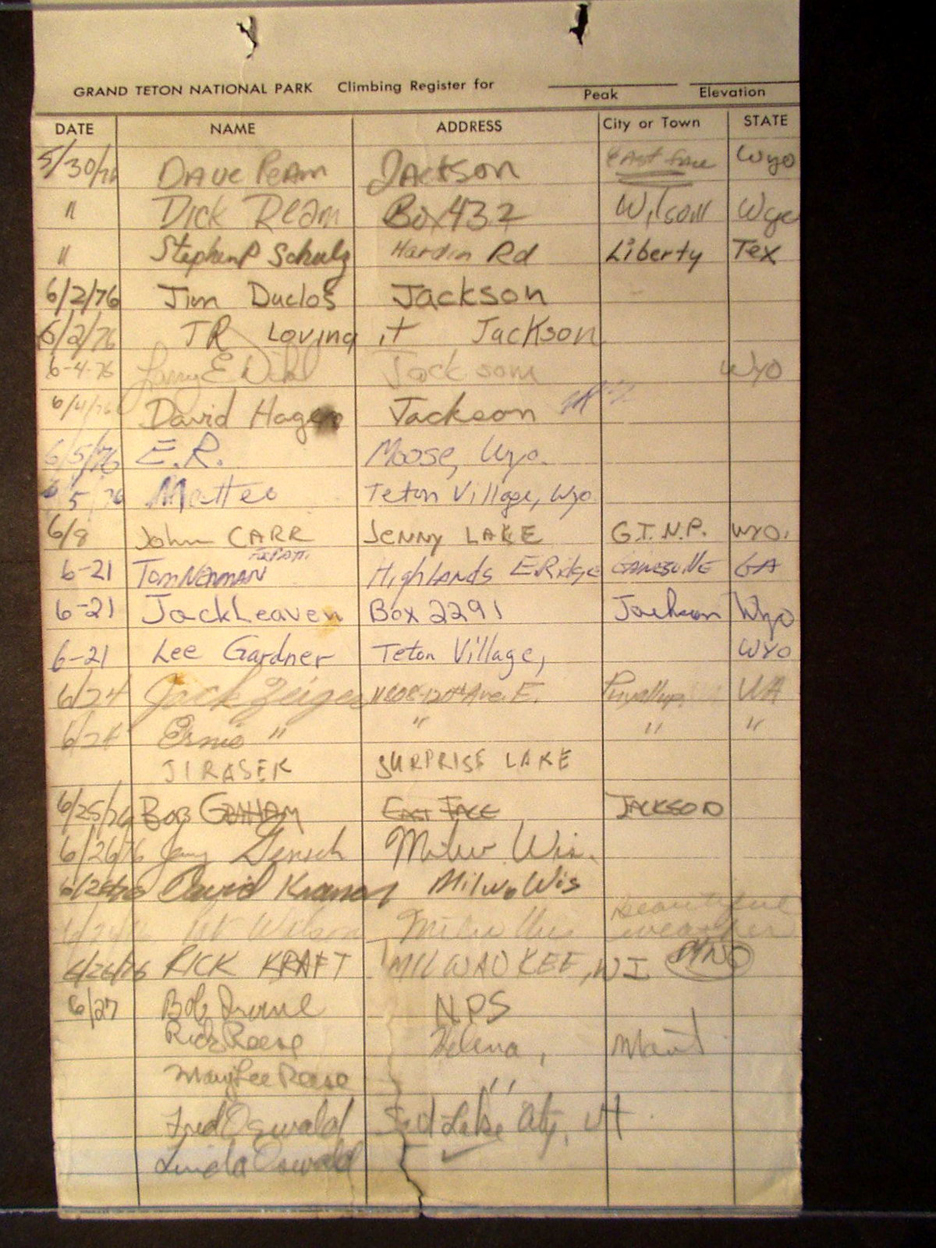 GRAND TETON NATIONAL PARK Climbing Register for Peak Elevation
DATE NAME ADDRESS City or Town STATE
5/30/76 Dave Ream Jackson East face Wyo
" Dick Ream Box 432 Wilson Wyo
" Stephen P Schulz Hardin Rd Liberty Tex
6/2/76 Jim Duclos Jackson
6/2/76 JR Loving it Jackson
6-4-76 Larry E Jackson Wyo
6/4/76 David Hagen Jackson
6/5/76 E.R. Moose, Wyo.
6/5/76 Matteo Teton Village, Wyo.
6/8 John CARR JENNY LAKE G.T.N.P. WYO.
6-21 Tom NEWMAN Highlands E. Ridge GAINESVILLE GA
6-21 Jack Leaven Box 2291 Jackson Wyo
6-21 Lee Gardner Teton Village, WYO
6/24 Jack Zeiger 11608-120th Ave. E. Puyallup WA
6/24 Ernie " " " "
JIRASEK SURPRISE LAKE
6/25/76 BOB GRAHAM EAST FACE JACKSON
6/26/76 Jerry Gensch Milw Wis.
6/26/76 David Milw. Wis
Wilson Milw Wis beautiful weather
6/26/76 RICK KRAFT MILWAUKEE, WI
6/27 Bob Irvine NPS
Rick Reese Helena, Mont
Mary Lee Reese "
Fred Oswald Salt Lake City, UT
Linda Oswald